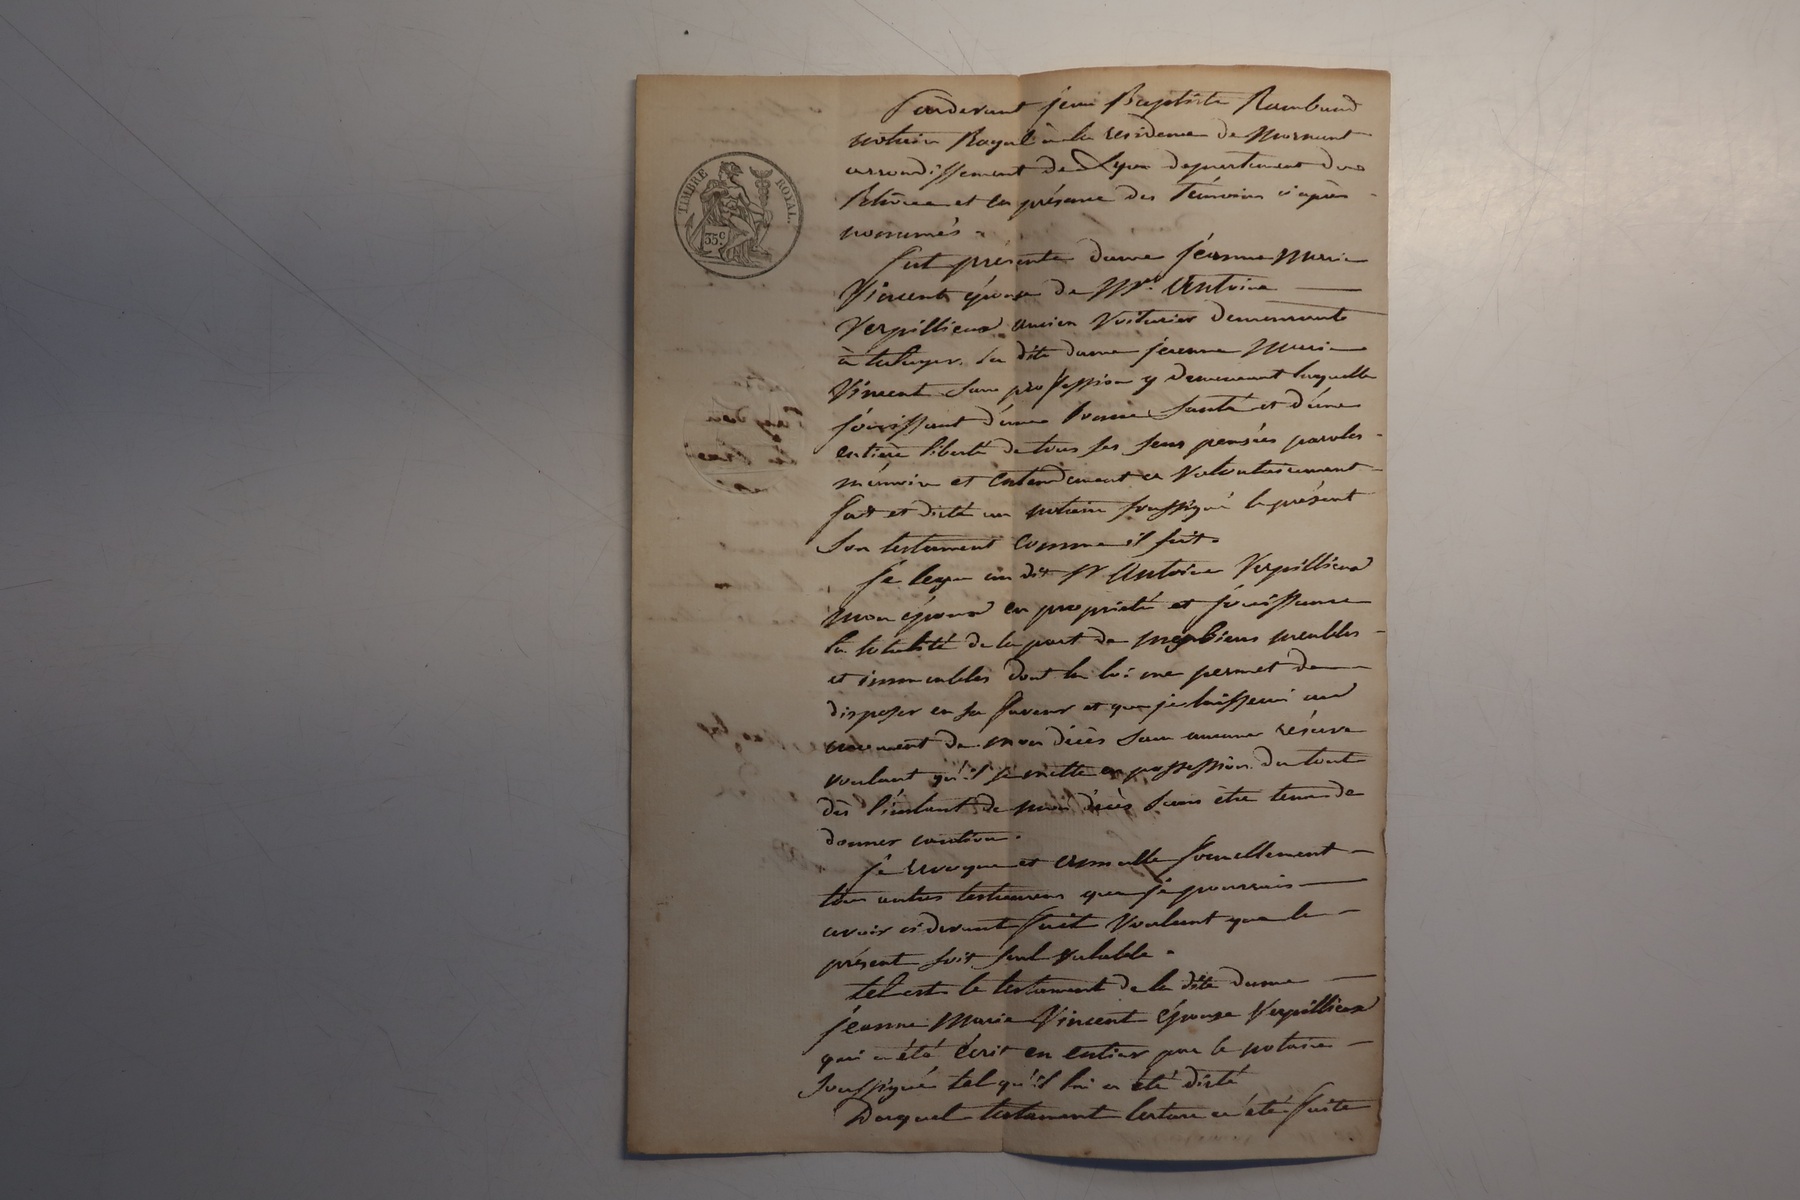 TIMBRE ROYAL.
35c
Pardevant jean Baptiste Rambaud
notaire Royal à la residence de Mornant
arrondissement de Lyon departement du
Rhône et en présence des Témoins ci après
nommés
fut présente dame jeanne Marie
Vincent épouse de Mr. Antoine
Verpillieux ancien Voiturier demeurant
à taluyer. La dite dame jeanne Marie
Vincent sans profession y demeurant laquelle
jouissant d'une bonne santé et d'une
entière liberté de tous ses sens pensées paroles
mémoire et entendement a Volontairement
fait et dicté au notaire soussigné le présent
son testament comme il suit.
je legue au dit Sr Antoine Verpillieux
mon époux en propriété et jouissance
la totalité de la part de mes biens meubles
et immeubles dont la loi me permet de
disposer en sa faveur et que je laisserai au
moment de mon décès sans aucune réserve
voulant qu'il se mette en possession du tout
dès l'instant de mon décès sans être tenu de
donner caution.
je revoque et annulle formellement
tous autres testamens que je pourrais
avoir ci devant fait Voulant que le
présent soit seul valable.
tel est le testament de la dite dame
jeanne Marie Vincent épouse Verpillieux
qui a été écrit en entier par le notaire
soussigné tel qu'il lui a été dicté
Duquel testament lecture a été faite